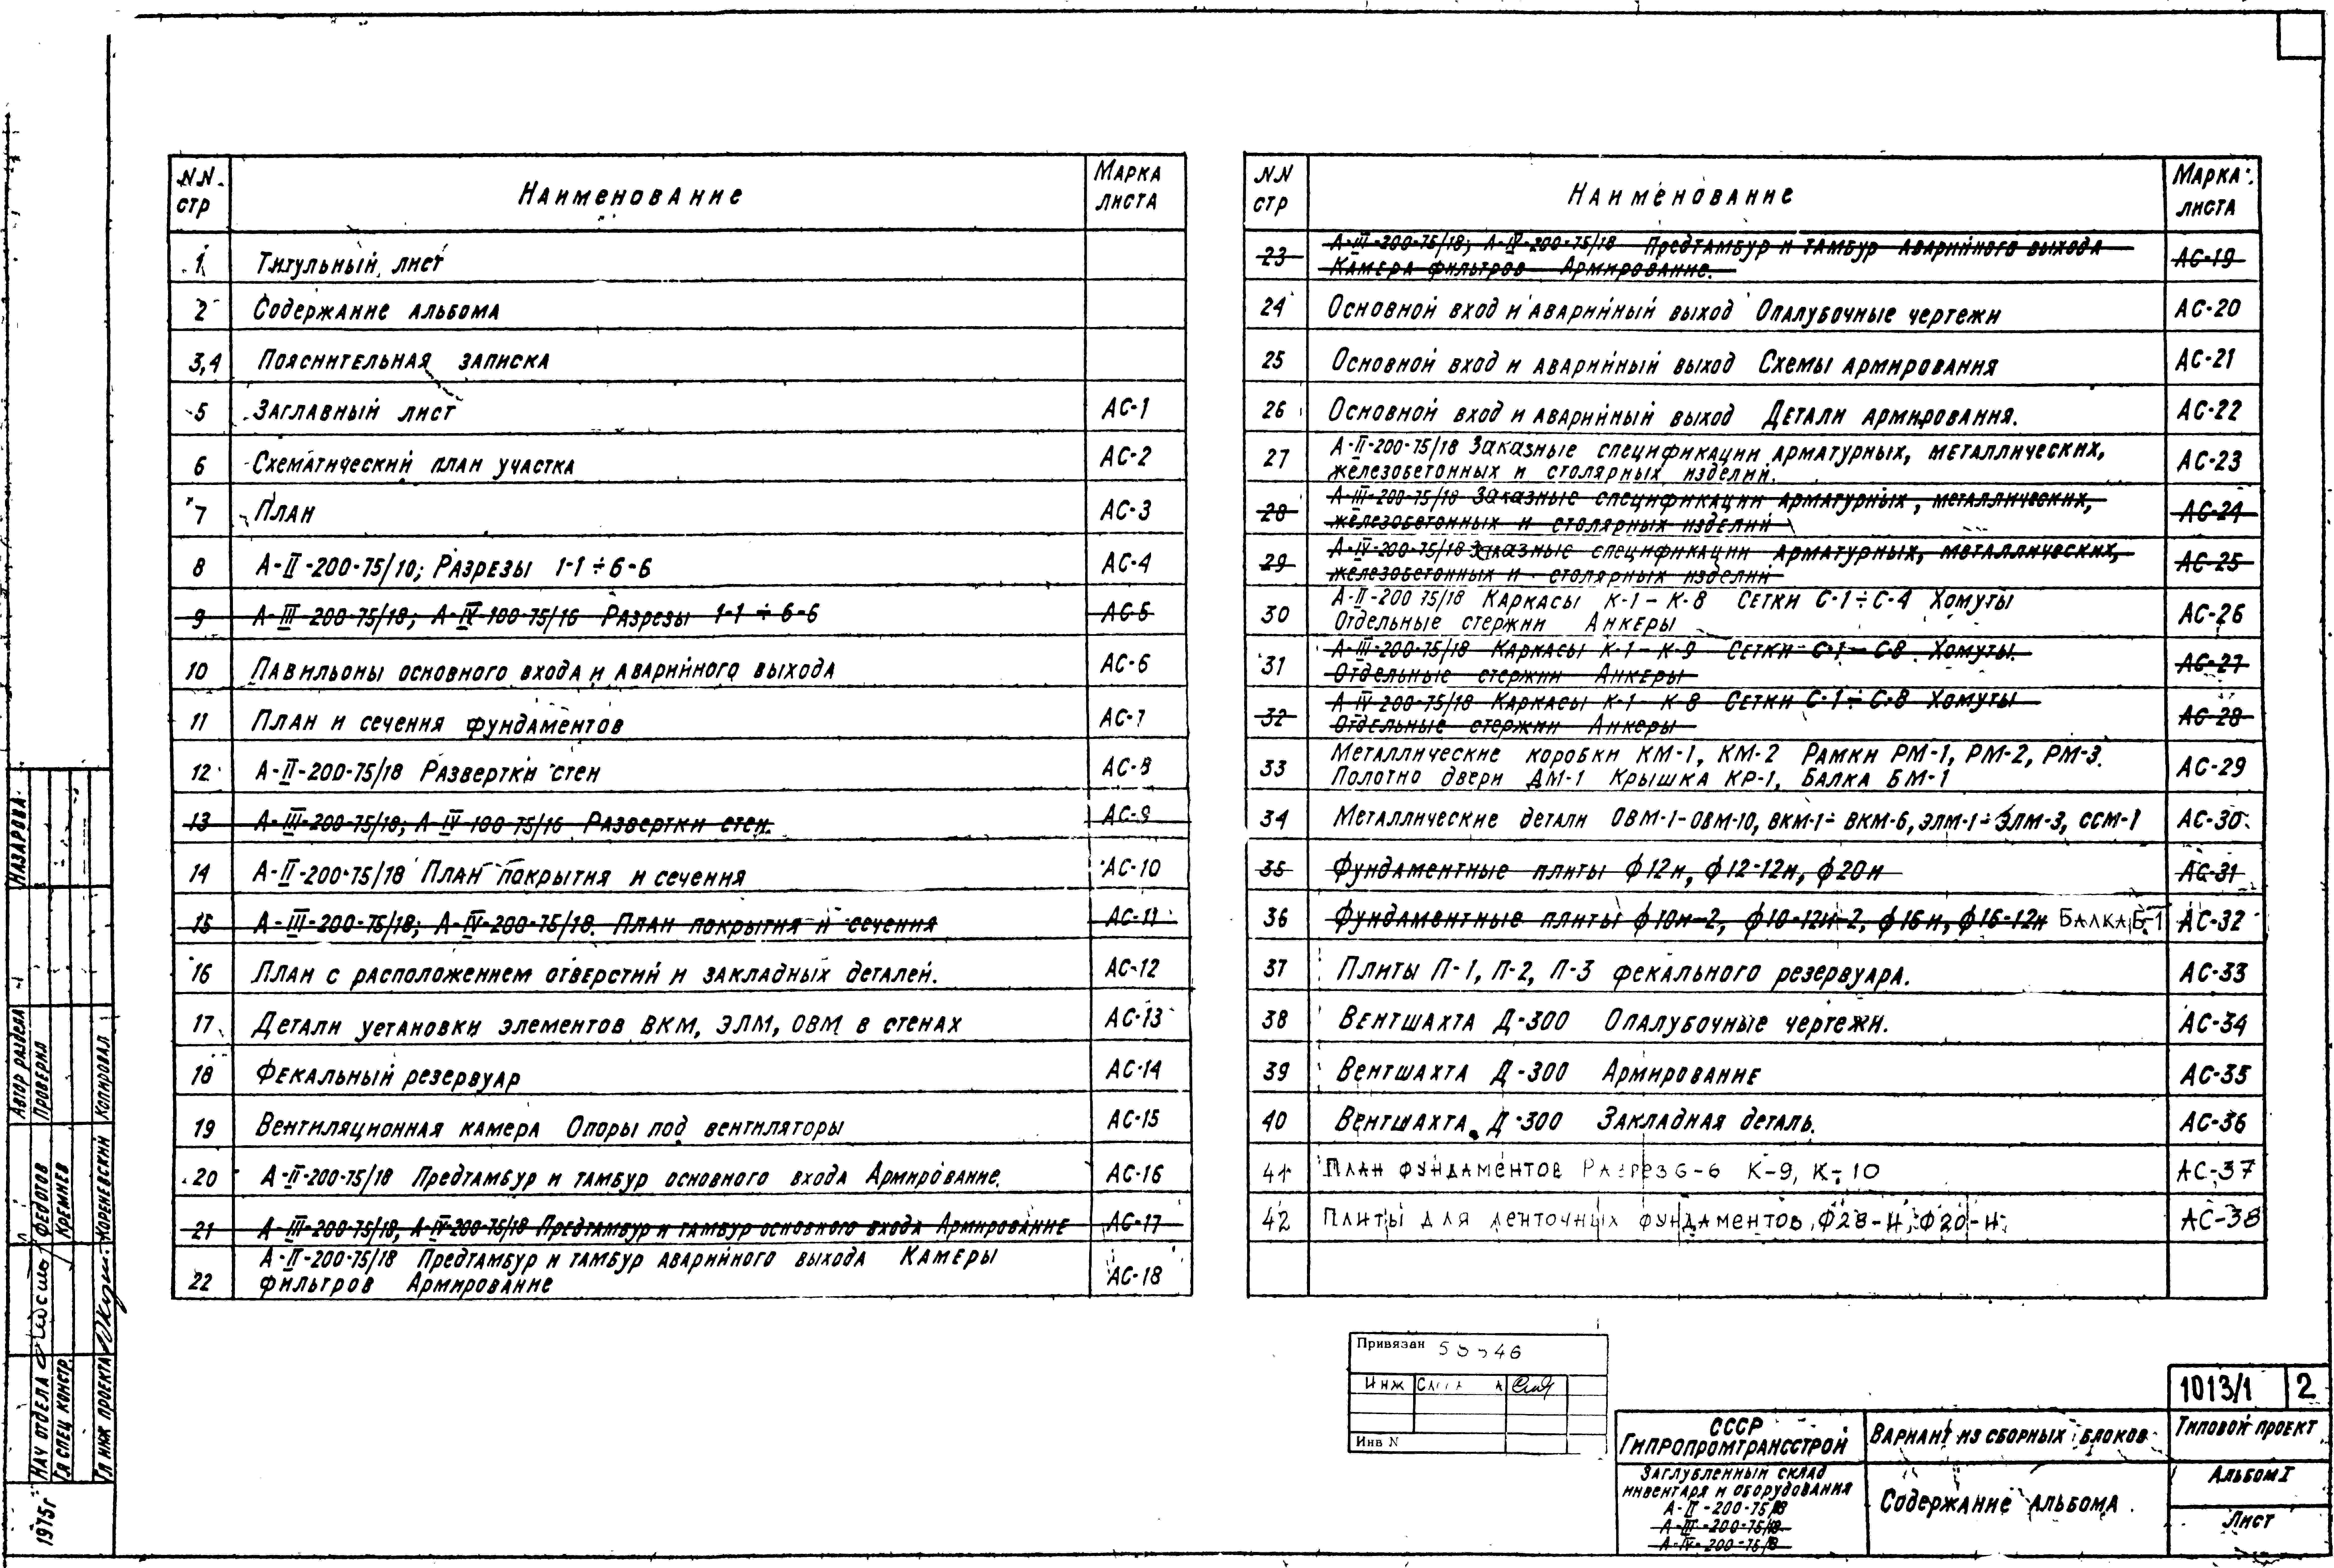 NN стр Наименование Марка листа
1 Титульный лист
2 Содержание альбома
3,4 Пояснительная записка
5 Заглавный лист АС-1
6 Схематический план участка АС-2
7 План АС-3
8 А-II-200-75/10; Разрезы 1-1÷6-6 АС-4
9 А-III-200-75/18; А-IV-100-75/16 Разрезы 1-1÷6-6 АС-5
10 Павильоны основного входа и аварийного выхода АС-6
11 План и сечения фундаментов АС-7
12 А-II-200-75/18 Развертки стен АС-8
13 А-III-200-75/18; А-IV-100-75/16 Развертки стен. АС-9
14 А-II-200-75/18 План покрытия и сечения АС-10
15 А-III-200-75/18; А-IV-200-75/18. План покрытия и сечения АС-11
16 План с расположением отверстий и закладных деталей. АС-12
17 Детали установки элементов ВКМ, ЭЛМ, ОВМ в стенах АС-13
18 Фекальный резервуар АС-14
19 Вентиляционная камера Опоры под вентиляторы АС-15
20 А-II-200-75/18 Предтамбур и тамбур основного входа Армирование. АС-16
21 А-III-200-75/18, А-IV-200-75/18 Предтамбур и тамбур основного входа Армирование АС-17
22 А-II-200-75/18 Предтамбур и тамбур аварийного выхода Камеры
фильтров Армирование АС-18
NN стр Наименование Марка листа
23 А-III-200-75/18; А-IV-200-75/18 Предтамбур и тамбур аварийного выхода
Камера фильтров Армирование. АС-19
24 Основной вход и аварийный выход Опалубочные чертежи АС-20
25 Основной вход и аварийный выход Схемы армирования АС-21
26 Основной вход и аварийный выход Детали армирования. АС-22
27 А-II-200-75/18 Заказные спецификации арматурных, металлических,
железобетонных и столярных изделий. АС-23
28 А-III-200-75/18 Заказные спецификации арматурных, металлических,
железобетонных и столярных изделий АС-24
29 А-IV-200-75/18 Заказные спецификации арматурных, металлических,
железобетонных и столярных изделий АС-25
30 А-II-200 75/18 Каркасы К-1-К-8 Сетки С-1÷С-4 Хомуты
Отдельные стержни Анкеры АС-26
31 А-III-200-75/18 Каркасы К-1-К-9 Сетки С-1-С-8 Хомуты.
Отдельные стержни Анкеры АС-27
32 А-IV-200-75/18 Каркасы К-1-К-8 Сетки С-1÷С-8 Хомуты
Отдельные стержни Анкеры АС-28
33 Металлические коробки КМ-1, КМ-2 Рамки РМ-1, РМ-2, РМ-3.
Полотно двери ДМ-1 Крышка КР-1, Балка БМ-1 АС-29
34 Металлические детали ОВМ-1-ОВМ-10, ВКМ-1÷ВКМ-6, ЭЛМ-1÷ЭЛМ-3, ССМ-1 АС-30
35 Фундаментные плиты ф12н, ф12-12н, ф20н АС-31
36 Фундаментные плиты ф10н-2, ф10-12н-2, ф16н, ф16-12н Балка Б-1 АС-32
37 Плиты П-1, П-2, П-3 фекального резервуара. АС-33
38 Вентшахта Д-300 Опалубочные чертежи. АС-34
39 Вентшахта Д-300 Армирование АС-35
40 Вентшахта Д-300 Закладная деталь. АС-36
41 План фундаментов Разрез 6-6 К-9, К-10 АС-37
42 Плиты для ленточных фундаментов, Ф28-Н, Ф20-Н АС-38
Привязан
Инж
Инв N
1013/1 2
СССР
Гипропромтрансстрой
Заглубленный склад
инвентаря и оборудования
А-II-200-75/18
А-III-200-75/18
А-IV-200-75/18
Вариант из сборных блоков
Содержание альбома.
Типовой проект
Альбом I
Лист
Назарова
Автор раздела
Проверил
Копировал
Федотов
Кремнев
Кореневский
Нач отдела
Гл спец констр.
Гл инж проекта
1975г